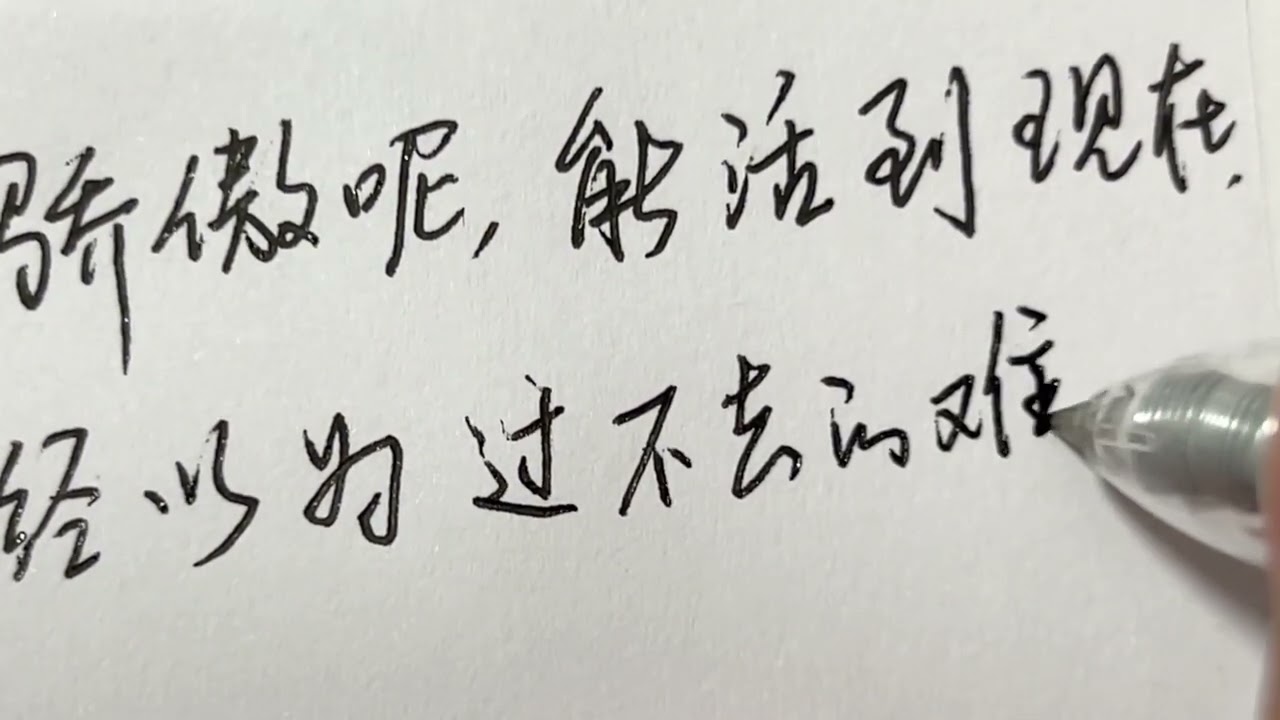 骄傲呢,能活到现在,
经以为过不去的难